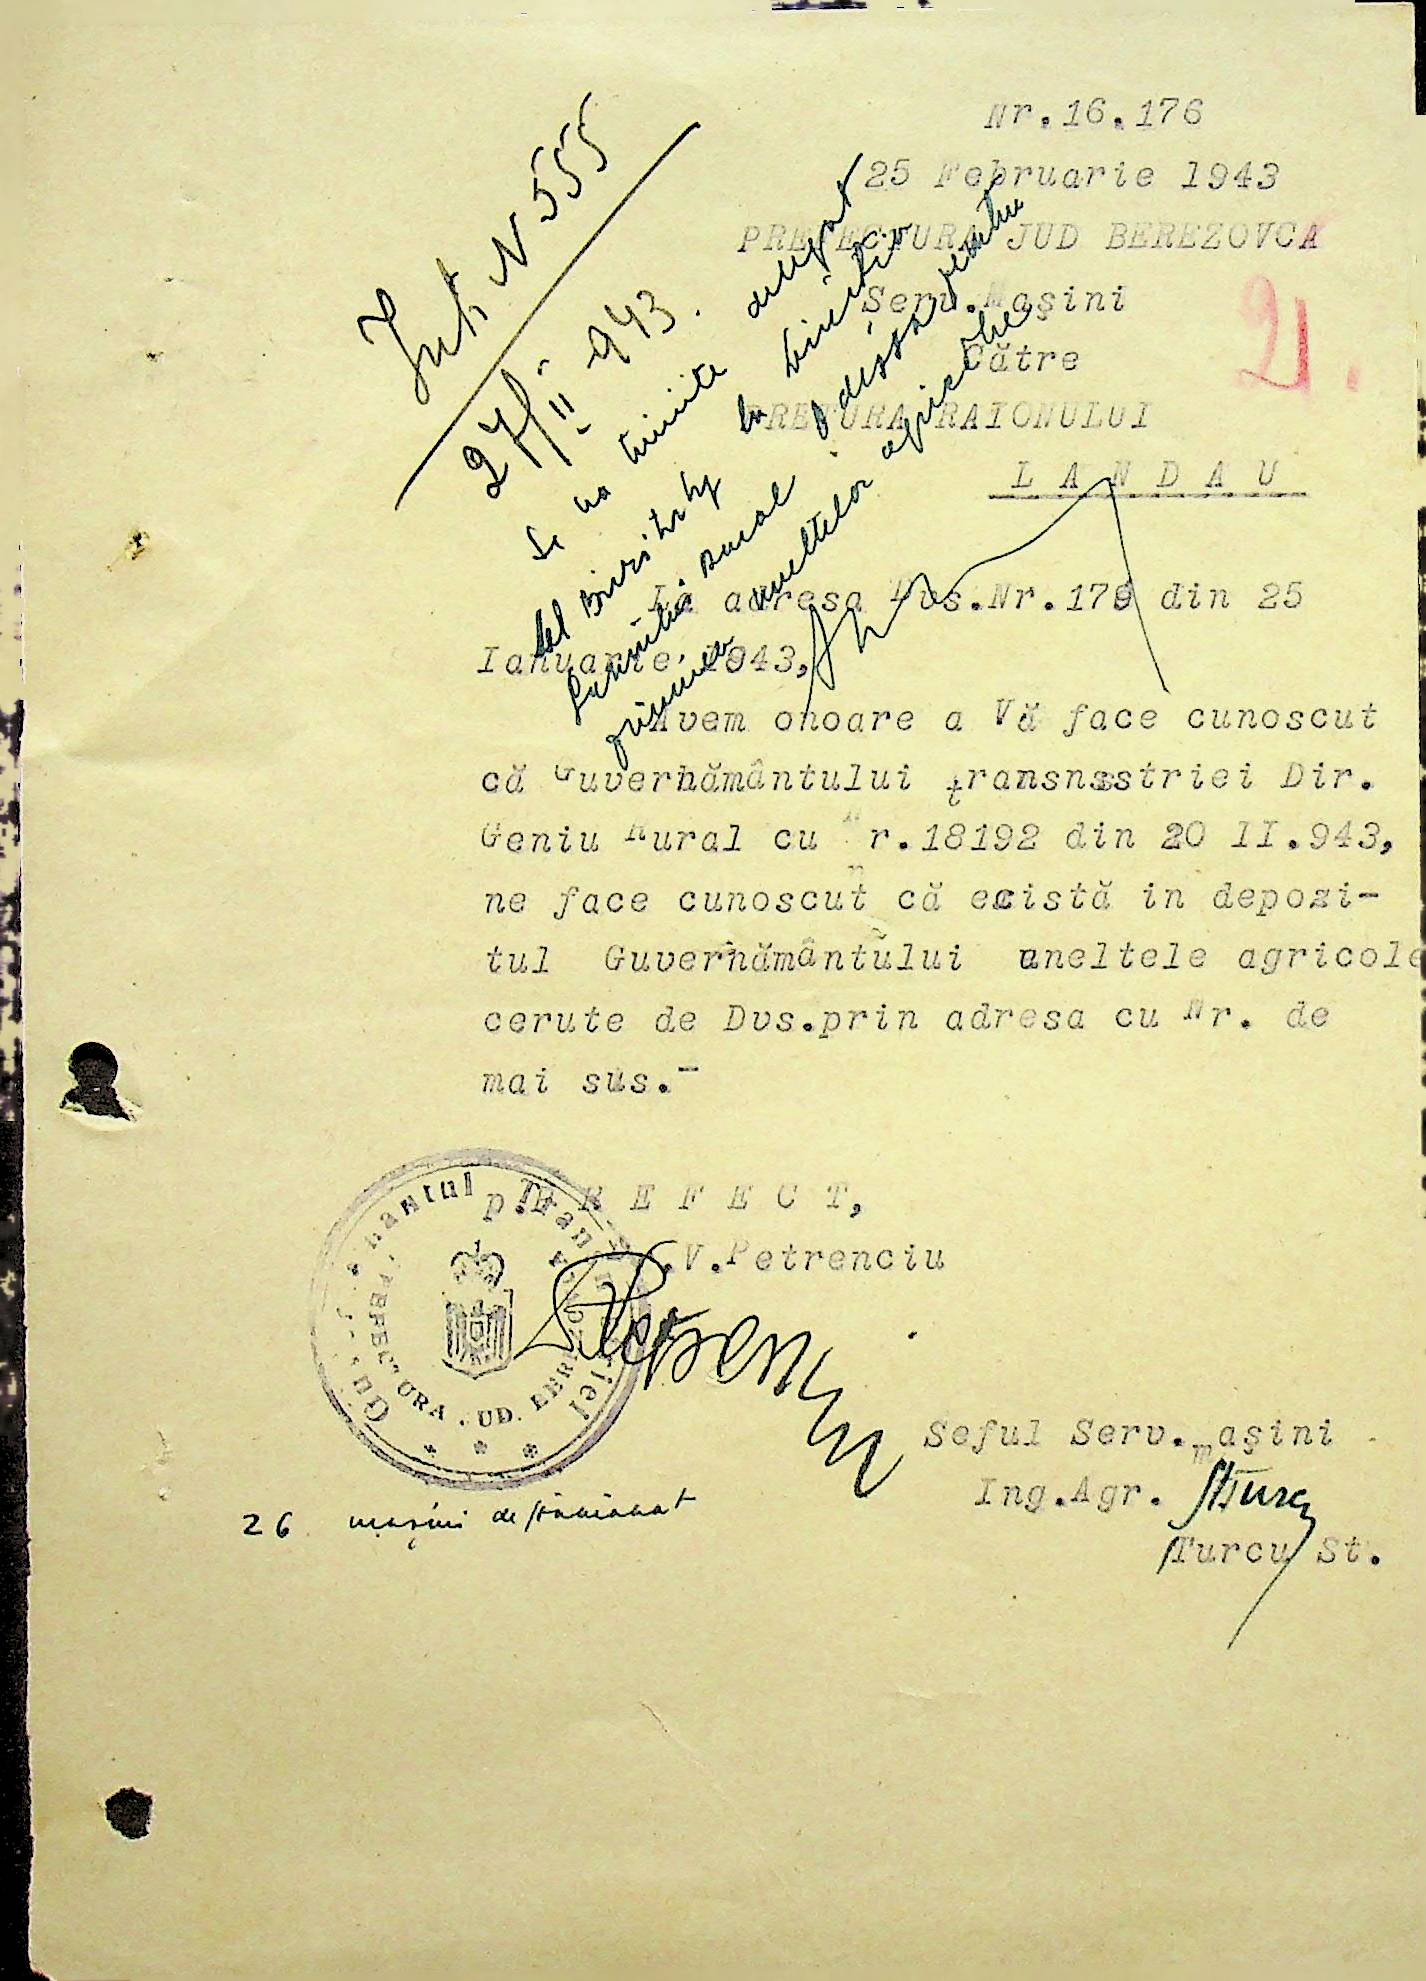 Nr.16.176
25 Februarie 1943
PREFECTURA JUD BEREZOVCA
Serv.Maşini
Către
PRETURA RAIONULUI
L A N D A U
21.
Int N 555
27/II 943.
Se va trimite delegat
la Direcția
rural Odessa pentru
primirea uneltelor agricole
La adresa Dvs.Nr.179 din 25
Ianuarie 1943,
Avem onoare a Vă face cunoscut
că Guvernământului transnistriei Dir.
Geniu Rural cu Nr.18192 din 20 II.943,
ne face cunoscut că există in depozi-
tul Guvernământului uneltele agricole
cerute de Dvs.prin adresa cu Nr. de
mai sus.-
p.P R E F E C T,
V.Petrenciu
Guvernamantul Transnistriei
PREFECTURA JUD. BEREZOVCA
Seful Serv.maşini
Ing.Agr.
Turcu St.
26 maşini de sămănat